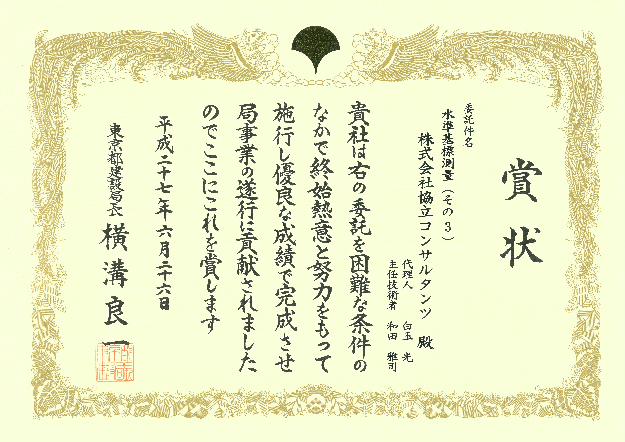 賞状
委託件名
水準基標測量(その3)
株式会社協立コンサルタンツ 殿
代理人 白玉 光
主任技術者 和田 雅司
貴社は右の委託を困難な条件の
なかで終始熱意と努力をもって
施行し優良な成績で完成させ
局事業の遂行に貢献されました
のでここにこれを賞します
平成二十七年六月二十六日
東京都建設局長 横溝良一